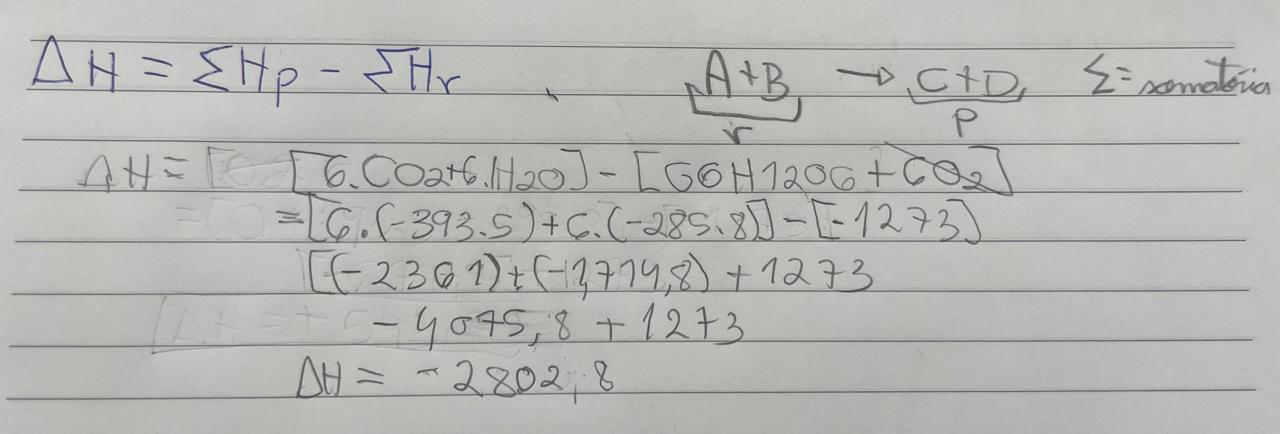 ΔH = ΣHp - ΣHr A+B → C+D Σ= somatória
r p
ΔH = [6.CO2+6.H2O] - [C6H12O6 + CO2]
= [6.(-393.5)+6.(-285.8)] - [-1273]
[(-2361)+(-1,714,8) + 1273
- 4075,8 + 1273
ΔH = -2802,8